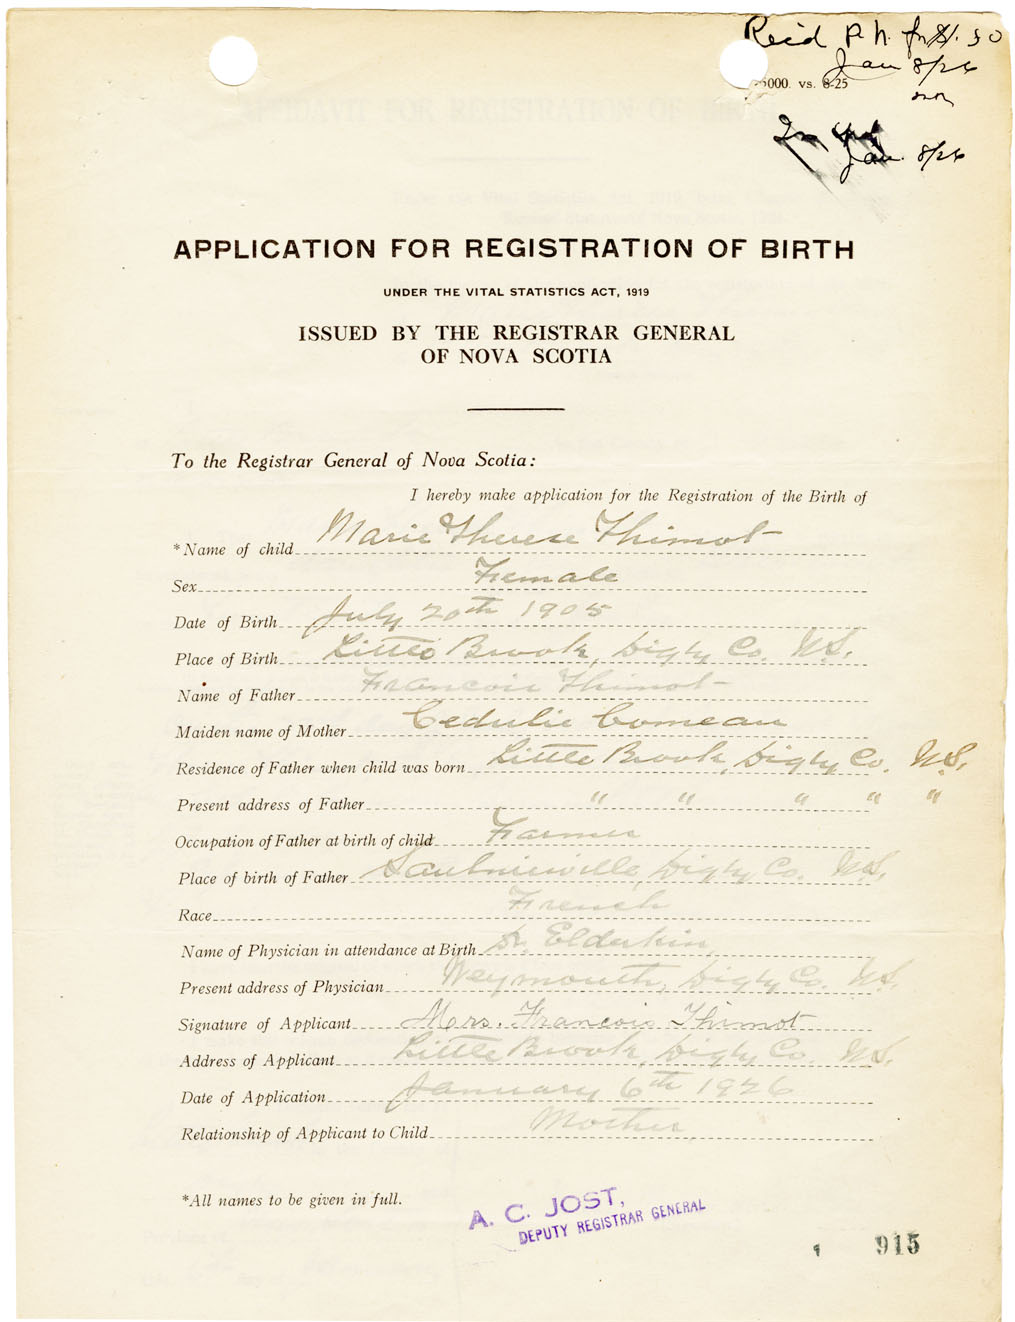 Recid P.N. for $1.50
Jan 8/26
5000. vs. 8-25
Jan. 8/26
APPLICATION FOR REGISTRATION OF BIRTH
UNDER THE VITAL STATISTICS ACT, 1919
ISSUED BY THE REGISTRAR GENERAL
OF NOVA SCOTIA
To the Registrar General of Nova Scotia:
I hereby make application for the Registration of the Birth of
*Name of child Marie Therese Thimot
Sex Female
Date of Birth July 20th 1905
Place of Birth Little Brook, Digby Co. N.S.
Name of Father Francois Thimot
Maiden name of Mother Cedulie Comeau
Residence of Father when child was born Little Brook, Digby Co. N.S.
Present address of Father " " " " "
Occupation of Father at birth of child Farmer
Place of birth of Father Saulnierville, Digby Co. N.S.
Race French
Name of Physician in attendance at Birth Dr. Elderkin,
Present address of Physician Weymouth, Digby Co. N.S.
Signature of Applicant Mrs. Francois Thimot
Address of Applicant Little Brook, Digby Co. N.S.
Date of Application January 6th 1926
Relationship of Applicant to Child Mother
*All names to be given in full.
A. C. JOST,
DEPUTY REGISTRAR GENERAL
915